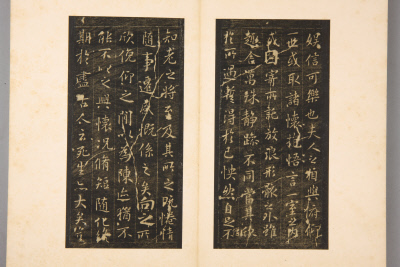 娛信可樂也夫人之相與俯仰
一世或取諸懷抱悟言一室之內
或因寄所託放浪形骸之外雖
趣舍萬殊靜躁不同當其欣
於所遇蹔得於己怏然自足不
知老之將至及其所之既惓情
隨事遷感慨係之矣向之所
欣俛仰之閒以為陳迹猶不
能不以之興懷況脩短隨化終
期於盡古人云死生亦大矣豈